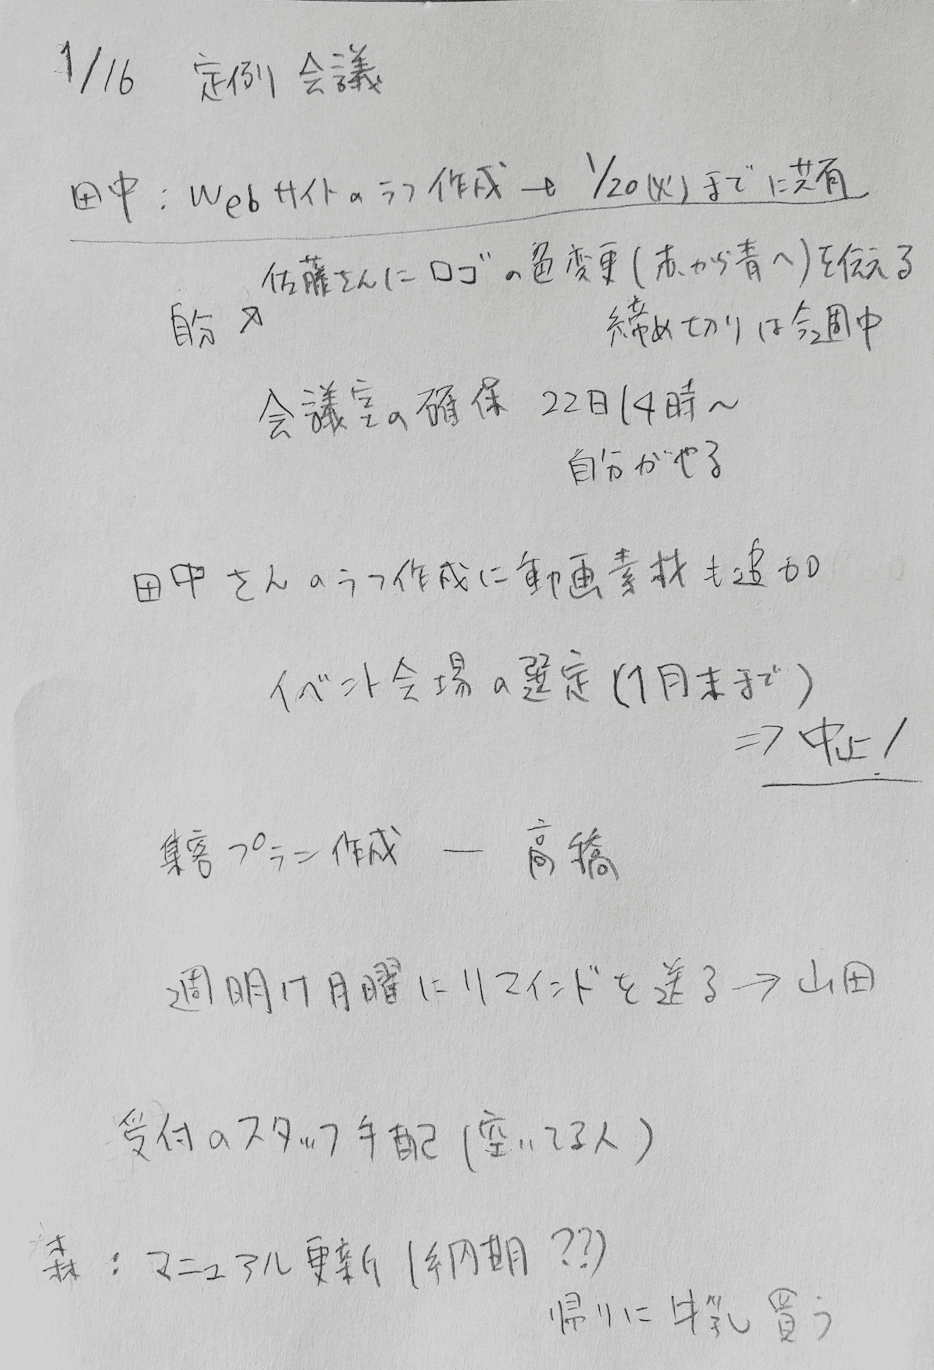 1/16 定例会議
田中：Webサイトのラフ作成→1/20(火)までに共有
佐藤さんにロゴの色変更(赤から青へ)を伝える
自分↗
締め切りは今週中
会議室の確保 22日14時〜
自分がやる
田中さんのラフ作成に動画素材も追加
イベント会場の選定(1月末まで)
⇒中止!
集客プラン作成 — 高橋
週明け月曜にリマインドを送る→山田
受付のスタッフ手配(空いてる人)
森：マニュアル更新(納期??)
帰りに牛乳買う